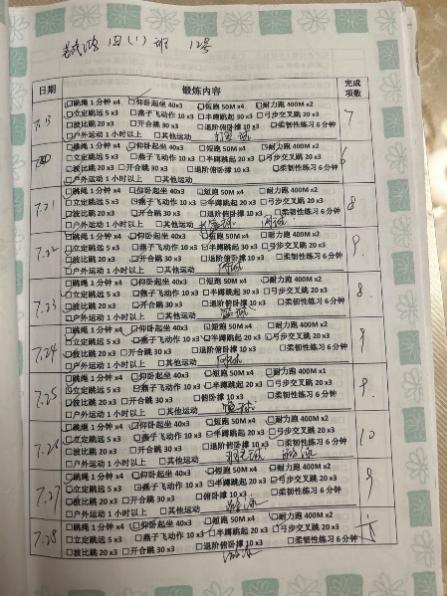 四(1)班 12号
日期 锻炼内容 完成项数
7.13 7
□跳绳 1 分钟 x4 □仰卧起坐 40x3 □短跑 50M x4 □耐力跑 400M x2
□立定跳远 5 x3 □燕子飞动作 10 x3 □半蹲跳起 30 x3 □弓步交叉跳 20 x3
□波比跳 20 x3 □开合跳 30 x3 □退阶俯卧撑 10 x3 □柔韧性练习 6 分钟
□户外运动 1 小时以上 □其他运动
6
□跳绳 1 分钟 x4 □仰卧起坐 40x3 □短跑 50M x4 □耐力跑 400M x2
□立定跳远 5 x3 □燕子飞动作 10 x3 □半蹲跳起 20 x3 □弓步交叉跳 20 x3
□波比跳 20 x3 □开合跳 30 x3 □退阶俯卧撑 10 x3 □柔韧性练习 6 分钟
□户外运动 1 小时以上 □其他运动
7.21 8
□跳绳 1 分钟 x4 □仰卧起坐 40x3 □短跑 50M x4 □耐力跑 400M x2
□立定跳远 5 x3 □燕子飞动作 10 x3 □半蹲跳起 30 x3 □弓步交叉跳 20 x3
□波比跳 20 x3 □开合跳 30 x3 □退阶俯卧撑 10 x3 □柔韧性练习 6 分钟
□户外运动 1 小时以上 □其他运动
7.22 9
□跳绳 1 分钟 x4 □仰卧起坐 40x3 □短跑 50M x4 □耐力跑 400M x2
□立定跳远 5 x3 □燕子飞动作 10 x3 □半蹲跳起 30 x3 □弓步交叉跳 20 x3
□波比跳 20 x3 □开合跳 30 x3 □退阶俯卧撑 10 x3 □柔韧性练习 6 分钟
□户外运动 1 小时以上 □其他运动
7.23 8
□跳绳 1 分钟 x4 □仰卧起坐 40x3 □短跑 50M x4 □耐力跑 400M x2
□立定跳远 5 x3 □燕子飞动作 10 x3 □半蹲跳起 30 x3 □弓步交叉跳 20 x3
□波比跳 20 x3 □开合跳 30 x3 □退阶俯卧撑 10 x3 □柔韧性练习 6 分钟
□户外运动 1 小时以上 □其他运动
7.24 9
□跳绳 1 分钟 x4 □仰卧起坐 40x3 □短跑 50M x4 □耐力跑 400M x2
□立定跳远 5 x3 □燕子飞动作 10 x3 □半蹲跳起 20 x3 □弓步交叉跳 20 x3
□波比跳 20 x3 □开合跳 30 x3 □退阶俯卧撑 10 x3 □柔韧性练习 6 分钟
□户外运动 1 小时以上 □其他运动
7.25 9
□跳绳 1 分钟 x4 □仰卧起坐 40x3 □短跑 50M x4 □耐力跑 400M x2
□立定跳远 5 x3 □燕子飞动作 10 x3 □半蹲跳起 20 x3 □弓步交叉跳 20 x3
□波比跳 20 x3 □开合跳 30 x3 俯卧撑 10 x3 □柔韧性练习 6 分钟
□户外运动 1 小时以上 □其他运动
7.26 10
□跳绳 1 分钟 x4 □仰卧起坐 40x3 □短跑 50M x4 □耐力跑 400M x2
□立定跳远 5 x3 □燕子飞动作 10 x3 □半蹲跳起 20 x3 □弓步交叉跳 20 x3
□波比跳 20 x3 □开合跳 30 x3 □退阶俯卧撑 10 x3 □柔韧性练习 6 分钟
□户外运动 1 小时以上 □其他运动 羽毛球 游泳
7.27 9
□跳绳 1 分钟 x4 □仰卧起坐 40x3 □短跑 50M x4 □耐力跑 400M x2
□立定跳远 5 x3 □燕子飞动作 10 x3 □半蹲跳起 20 x3 □弓步交叉跳 20 x3
□波比跳 20 x3 □开合跳 30 x3 □俯卧撑 10 x3 □柔韧性练习 6 分钟
□户外运动 1 小时以上 □其他运动 游泳
7.28
□跳绳 1 分钟 x4 □仰卧起坐 40x3 □短跑 50M x4 □耐力跑 400M x2
□立定跳远 5 x3 □燕子飞动作 10 x3 □半蹲跳起 20 x3 □弓步交叉跳 20 x3
□波比跳 20 x3 □开合跳 30 x3 □退阶俯卧撑 10 x3 □柔韧性练习 6 分钟
游泳